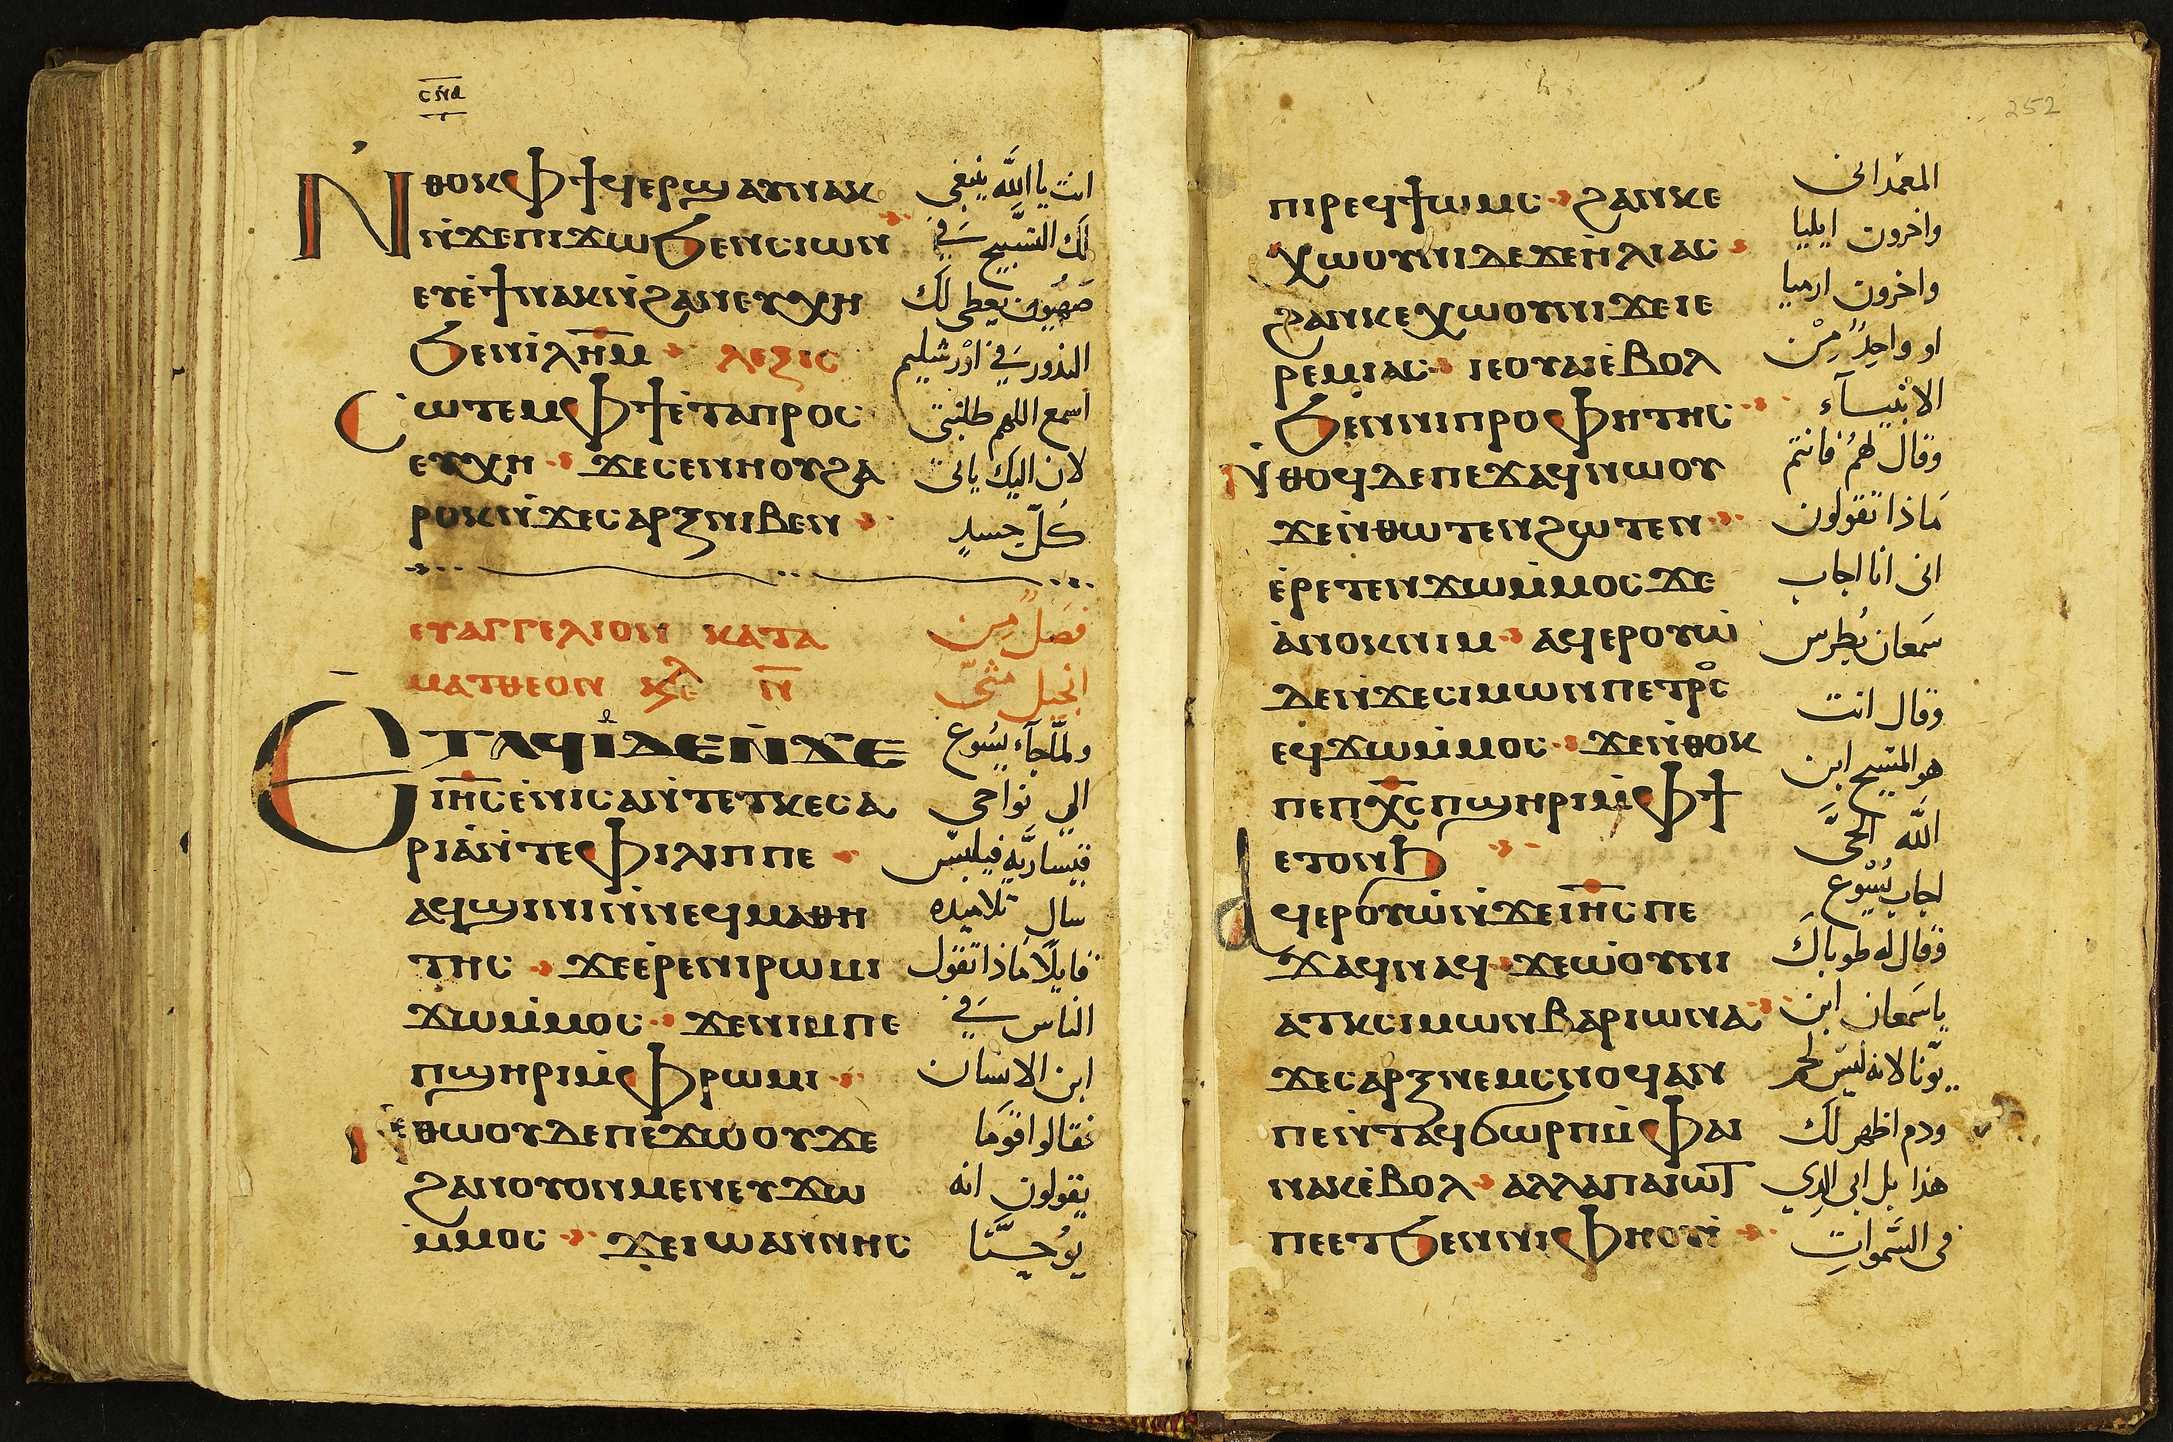 ⲥⲛⲁ
Ⲛ̀ⲑⲟⲕ ⲫϯ ϥⲉⲣϣⲁⲩ ⲛⲁⲕ
ⲛ̀ϫⲉ ⲡⲓϫⲱ ϧⲉⲛ ⲥⲓⲱⲛ
ⲉⲩⲉ̀ϯ ⲛⲁⲕ ⲛ̀ϩⲁⲛⲉⲩⲭⲏ
ϧⲉⲛ ⲓ̀ⲗⲏ̅ⲙ ⲗⲉⲝⲓⲥ
Ⲥⲱⲧⲉⲙ ⲫϯ ⲉ̀ⲧⲁⲡⲣⲟⲥ
ⲉⲩⲭⲏ ϫⲉ ⲥⲉⲛⲏⲟⲩ ϩⲁ
ⲣⲟⲕ ⲛ̀ϫⲉ ⲥⲁⲣⲝ ⲛⲓⲃⲉⲛ
ⲉⲩⲁⲅⲅⲉⲗⲓⲟⲛ ⲕⲁⲧⲁ
ⲙⲁⲧⲑⲉⲟⲛ ⲕⲉ ⲛ̅
Ⲉⲧⲁϥⲓ̀ ⲇⲉ ⲛ̀ϫⲉ
ⲓⲏ̅ⲥ ⲉ̀ⲛⲓⲥⲁ ⲛ̀ⲧⲉ ⲧⲕⲉⲥⲁ
ⲣⲓⲁ ⲛ̀ⲧⲉ ⲫⲓⲗⲓⲡⲡⲉ
ⲁϥϣⲓⲛⲓ ⲛ̀ⲛⲉϥⲙⲁⲑⲏ
ⲧⲏⲥ ϫⲉ ⲉ̀ⲣⲉ ⲛⲓⲣⲱⲙⲓ
ϫⲱ ⲙ̀ⲙⲟⲥ ϫⲉ ⲛⲓⲙ ⲡⲉ
ⲡϣⲏⲣⲓ ⲙ̀ⲫⲣⲱⲙⲓ
ⲛ̀ⲑⲱⲟⲩ ⲇⲉ ⲡⲉϫⲱⲟⲩ ϫⲉ
ϩⲁⲛⲟⲩⲟⲛ ⲙⲉⲛ ⲉⲩϫⲱ
ⲙ̀ⲙⲟⲥ ϫⲉ ⲓⲱⲁⲛⲛⲏⲥ
انت يا الله ينبغي
لك التسبيح في
صهيون يعطى لك
النذور في اورشليم
اسمع اللهم طلبتي
لان اليك ياتي
كل جسد
فصل من
انجيل متى
ولما جاء يسوع
الى نواحي
قيسارية فيلبس
سال تلاميذه
قايلا ماذا تقول
الناس في
ابن الانسان
فقالوا قوما
يقولون انه
يوحنا
252
ⲡⲓⲣⲉϥϯⲱⲙⲥ ϩⲁⲛⲕⲉ
ⲭⲱⲟⲩⲛⲓ ⲇⲉ ϫⲉ ⲏ̀ⲗⲓⲁⲥ
ϩⲁⲛⲕⲉⲭⲱⲟⲩⲛⲓ ϫⲉ ⲓⲉ
ⲣⲉⲙⲓⲁⲥ ⲓⲉ ⲟⲩⲁⲓ ⲉ̀ⲃⲟⲗ
ϧⲉⲛ ⲛⲓⲡⲣⲟⲫⲏⲧⲏⲥ
Ⲛ̀ⲑⲟϥ ⲇⲉ ⲡⲉϫⲁϥ ⲛⲱⲟⲩ
ϫⲉ ⲛ̀ⲑⲱⲧⲉⲛ ϩⲱⲧⲉⲛ
ⲉ̀ⲣⲉⲧⲉⲛϫⲱ ⲙ̀ⲙⲟⲥ ϫⲉ
ⲁ̀ⲛⲟⲕ ⲛⲓⲙ ⲁϥⲉⲣⲟⲩⲱ̀
ⲇⲉ ⲛ̀ϫⲉ ⲥⲓⲙⲱⲛ ⲡⲉⲧⲣⲟⲥ
ⲉϥϫⲱ ⲙ̀ⲙⲟⲥ ϫⲉ ⲛ̀ⲑⲟⲕ
ⲡⲉ ⲡⲭ̅ⲥ ⲡϣⲏⲣⲓ ⲙ̀ⲫϯ
ⲉⲧⲟⲛϧ
Ⲁϥⲉⲣⲟⲩⲱ̀ ⲛ̀ϫⲉ ⲓⲏ̅ⲥ ⲡⲉ
ϫⲁϥ ⲛⲁϥ ϫⲉ ⲱ̀ⲟⲩⲛⲓ
ⲁⲧⲕ ⲥⲓⲙⲱⲛ ⲃⲁⲣⲓⲱⲛⲁ
ϫⲉ ⲥⲁⲣⲝ ⲛⲉⲙ ⲥⲛⲟϥ ⲁⲛ
ⲡⲉⲛⲧⲁϥϭⲱⲣⲡ ⲙ̀ⲫⲁⲓ
ⲛⲁⲕ ⲉ̀ⲃⲟⲗ ⲁⲗⲗⲁ ⲡⲁⲓⲱⲧ
ⲡⲉ ⲉⲧ ϧⲉⲛ ⲛⲓⲫⲏⲟⲩⲓ̀
المعمداني
واخرون ايليا
واخرون ارميا
او واحد من
الانبياء
وقال لهم فانتم
ماذا تقولون
اني انا اجاب
سمعان بطرس
وقال انت
هو المسيح ابن
الله الحي
اجاب يسوع
وقال له طوباك
يا سمعان ابن
يونا لانه ليس لحم
ودم اظهر لك
هذا بل ابي الذي
في السموات